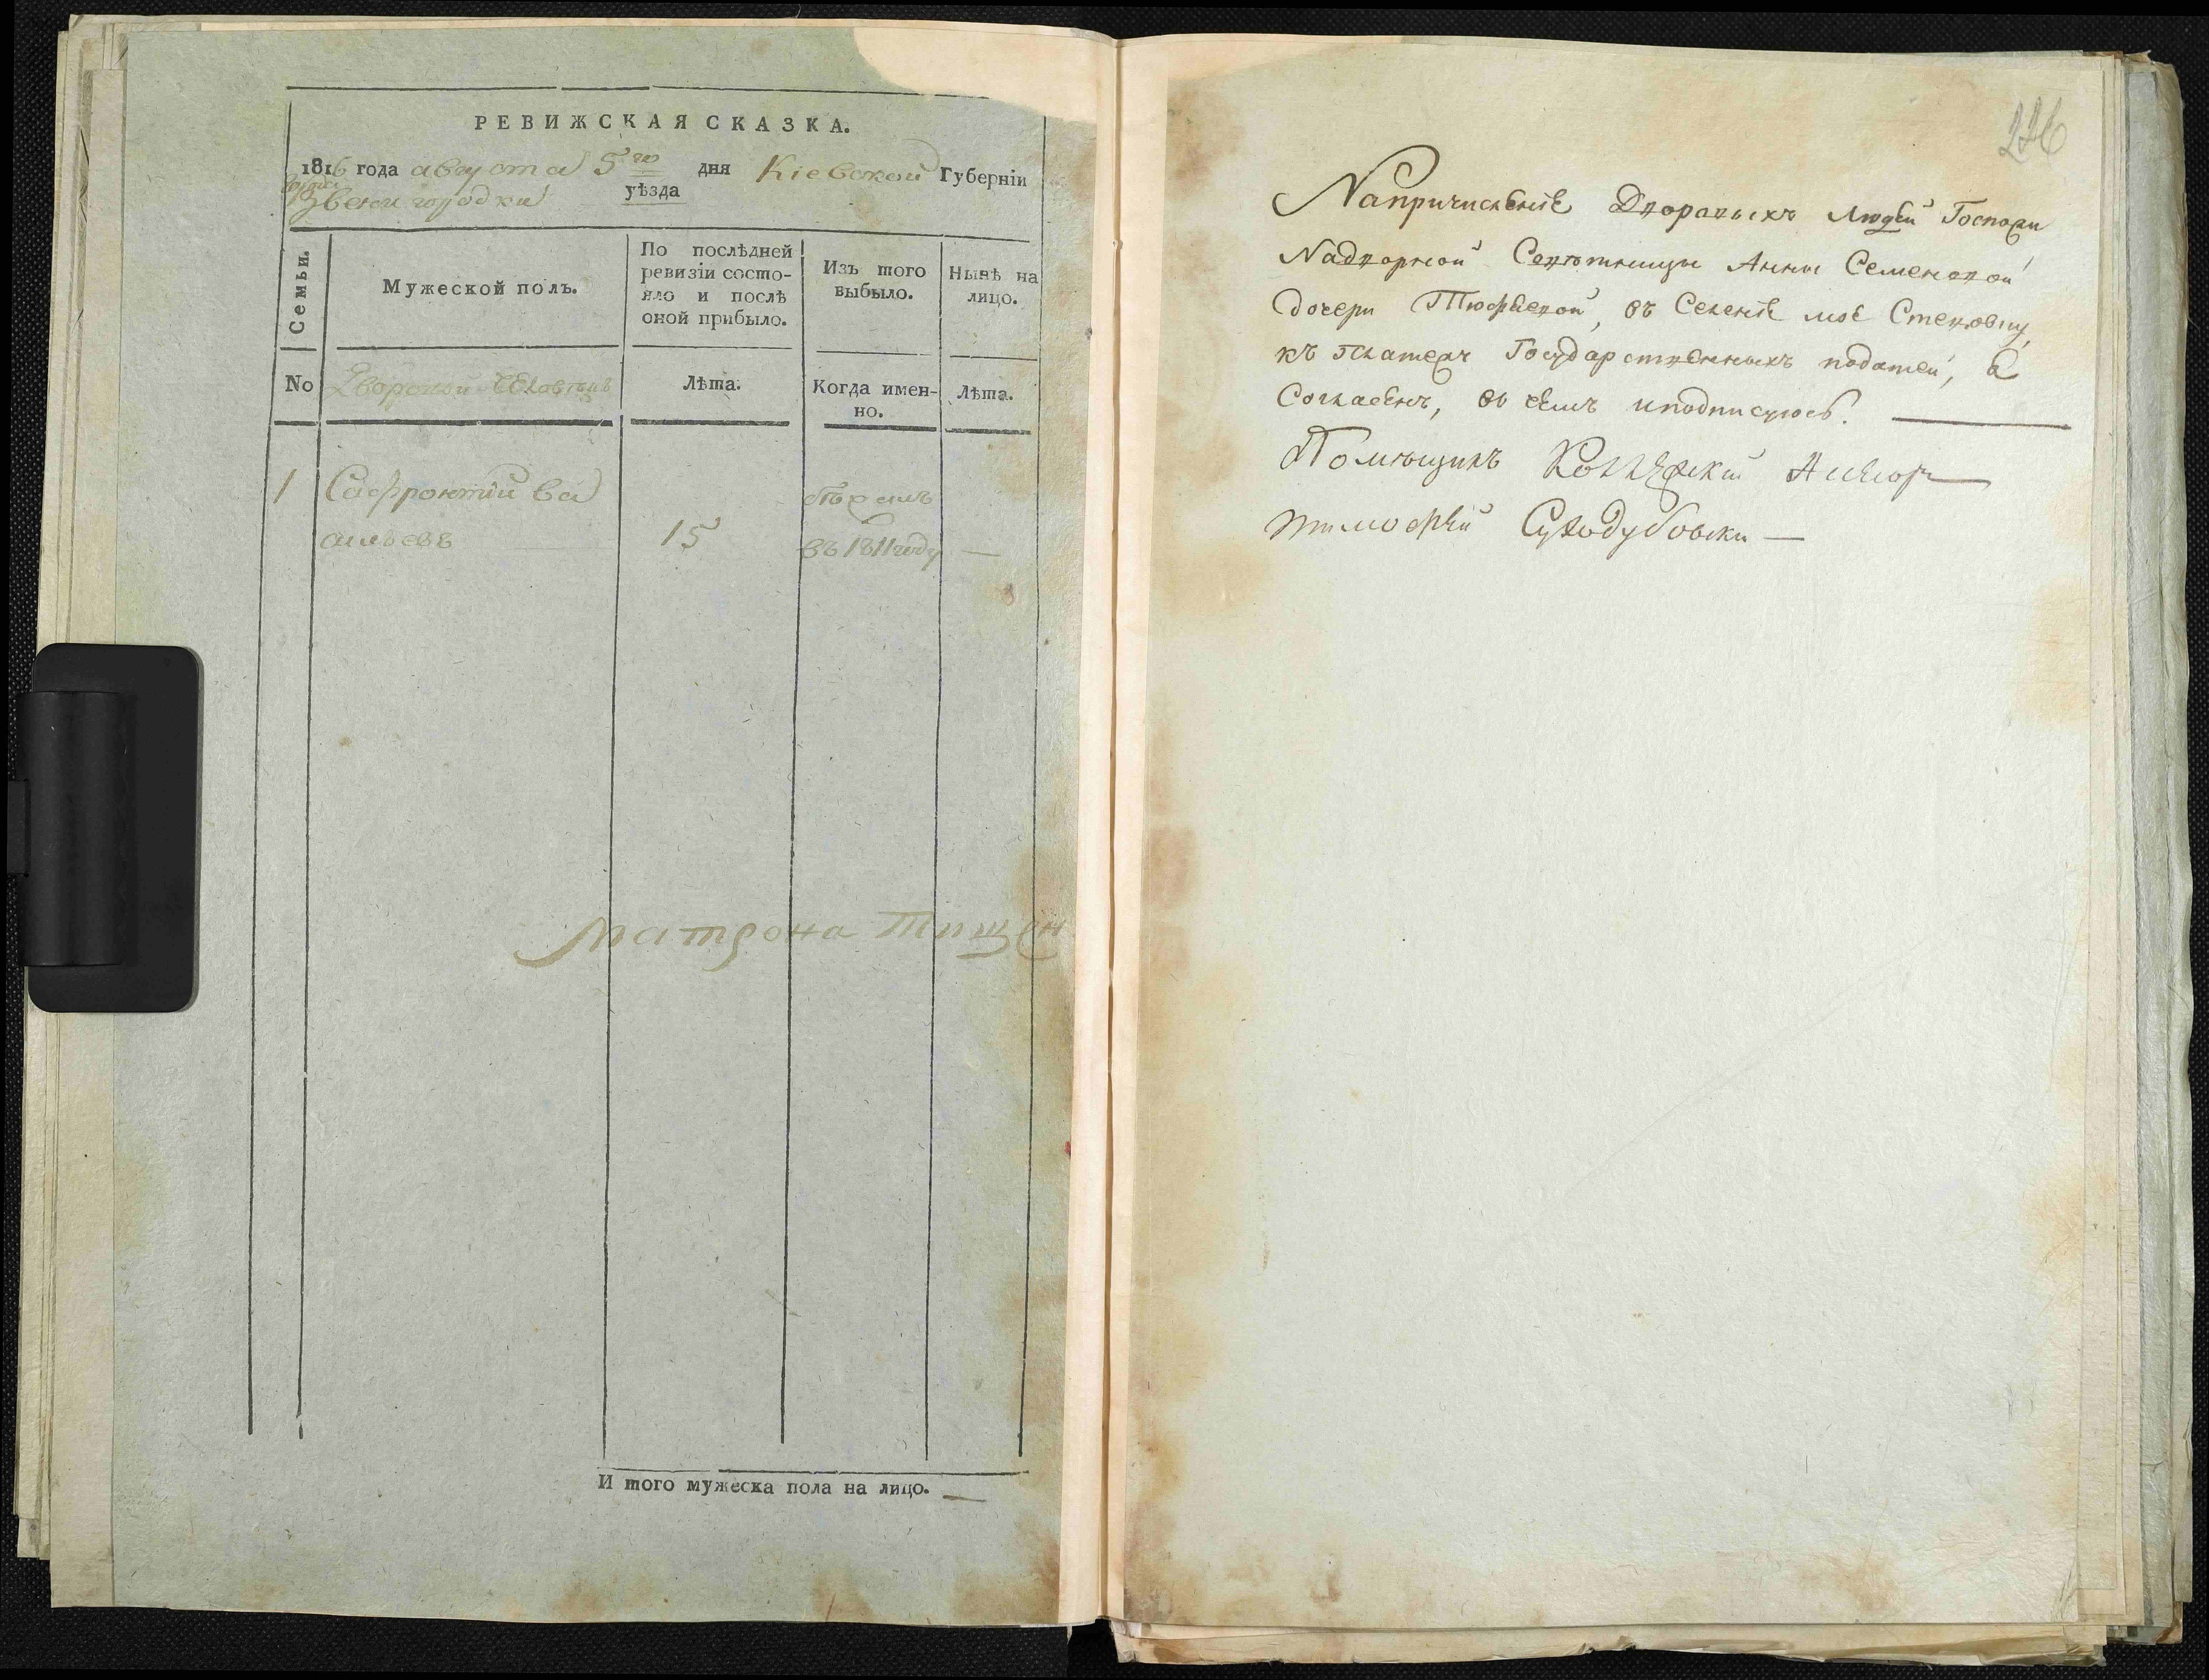 РЕВИЖСКАЯ СКАЗКА.
1816 года августа 5го дня Кіевской Губерніи
города Звенигородки уѣзда
Семьи.
Мужеской полъ.
По послѣдней
ревизіи состо-
яло и послѣ
оной прибыло.
Изъ того
выбыло.
Нынѣ на
лицо.
No
Дворовой человѣкъ
Лѣта.
Когда имен-
но.
Лѣта.
1 Сафронтий Ва
сильевъ 15
въ 1811 году —
Матрона Тищен
И того мужеска пола на лицо. —
226
Напричисленіе Дворовыхъ Людей Госпожи
Надворной Советницы Анны Семеновой
дочери Тюфяевой, въ Селеніе мое Стецовку,
къ платежу Государственныхъ податей, я
Согласенъ, въ чемъ иподписуюсь. —
Помѣщикъ Коллежкій Асесор
тимофей Суходубовски —